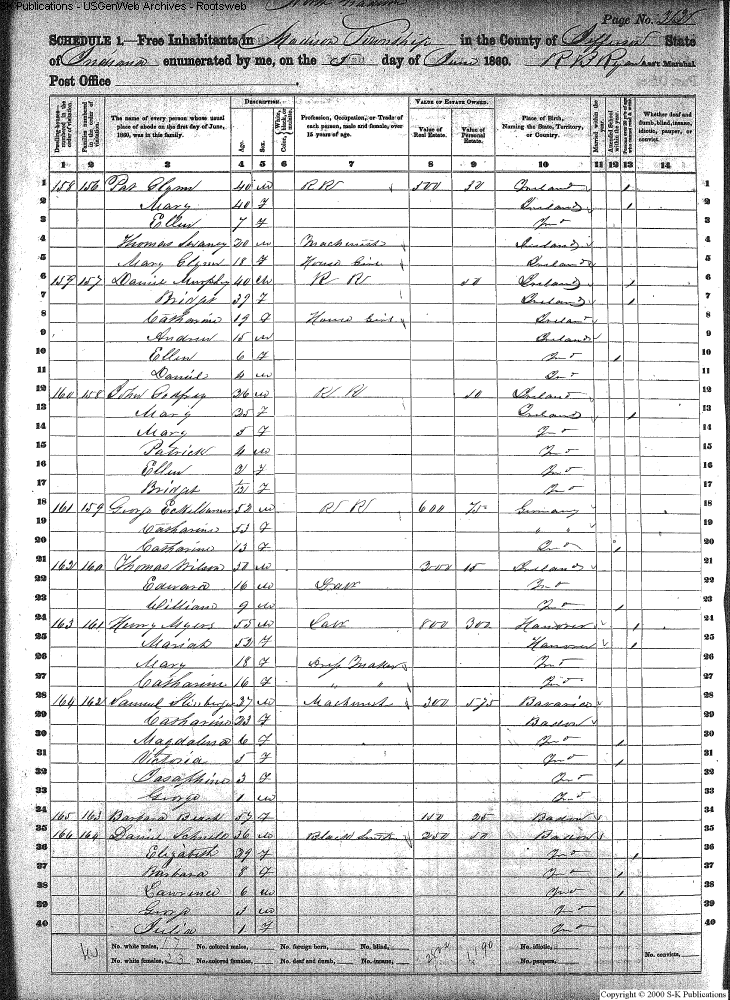 S-K Publications - USGenWeb Archives - Rootsweb
North Madison
Page No. 
SCHEDULE 1.—Free Inhabitants in Madison Township in the County of Jefferson State
of Indiana enumerated by me, on the day of June 1860. R B Ryan Ass't Marshal
Post Office
Dwelling-houses— numbered in the order of visitation.
Families numbered in the order of visitation.
The name of every person whose usual place of abode on the first day of June, 1860, was in this family.
DESCRIPTION.
Age.
Sex.
Color, White, black, or mulatto.
Profession, Occupation, or Trade of each person, male and female, over 15 years of age.
VALUE OF ESTATE OWNED.
Value of Real Estate.
Value of Personal Estate.
Place of Birth, Naming the State, Territory, or Country.
Married within the year.
Attended School within the year.
Whether deaf and dumb, blind, insane, idiotic, pauper, or convict.
1 2 3 4 5 6 7 8 9 10 11 12 13 14
1 158 156 Pat Clynn 40 m R R 500 30 Ireland / 1
2 Mary 40 f Ireland / 2
3 Ellen 7 f Ind 3
4 Thomas Swaney 20 m Machinist Ireland 4
5 Mary Clynn 18 f House Girl Ireland 5
6 159 157 Daniel Murphy 40 m R R 50 Ireland / 6
7 Bridget 39 f Ireland / 7
8 Catharine 19 f House Girl Ireland 8
9 Andrew 15 m Ireland 9
10 Ellen 6 f Ind / 10
11 Daniel 4 m Ind 11
12 160 158 John Godfrey 26 m R R 50 Ireland 12
13 Mary 25 f Ireland / 13
14 Mary 5 f Ind 14
15 Patrick 4 m Ind 15
16 Ellen 2 f Ind 16
17 Bridget f Ind 17
18 161 159 George 52 m R R 600 75 Germany 18
19 Catharine 53 f " " 19
20 Catharine 13 f Ind / 20
21 162 160 Thomas Wilson 50 m 300 15 Ireland 21
22 Edward 16 m Labr Ind 22
23 William 9 m Ind / 23
24 163 161 Henry Myers 55 m Labr 800 300 Hanover / 24
25 Mariah 52 f Hanover / 25
26 Mary 18 f Dress Maker Ind 26
27 Catharine 16 f " " Ind 27
28 164 162 Samuel 37 m Machinist 300 575 Bavaria 28
29 Catharine 33 f Baden 29
30 Magdalena 6 f Ind / 30
31 Victoria 5 f Ind / 31
32 Josaphine 3 f Ind 32
33 George 1 m Ind 33
34 165 163 Barbara 57 f 150 25 Baden 34
35 166 164 Daniel 36 m Black Smith 250 50 Baden 35
36 Elizabeth 29 f Ind / 36
37 Barbara 8 f Ind / 37
38 Lawrence 6 m Ind / 38
39 George 3 m Ind 39
40 Julia 1 f Ind 40
No. white males, 17 No. colored males, No. foreign born, No. blind, No. idiotic, No. convicts,
No. white females, 23 No. colored females, No. deaf and dumb, No. insane, No. paupers,
Copyright © 2000 S-K Publications